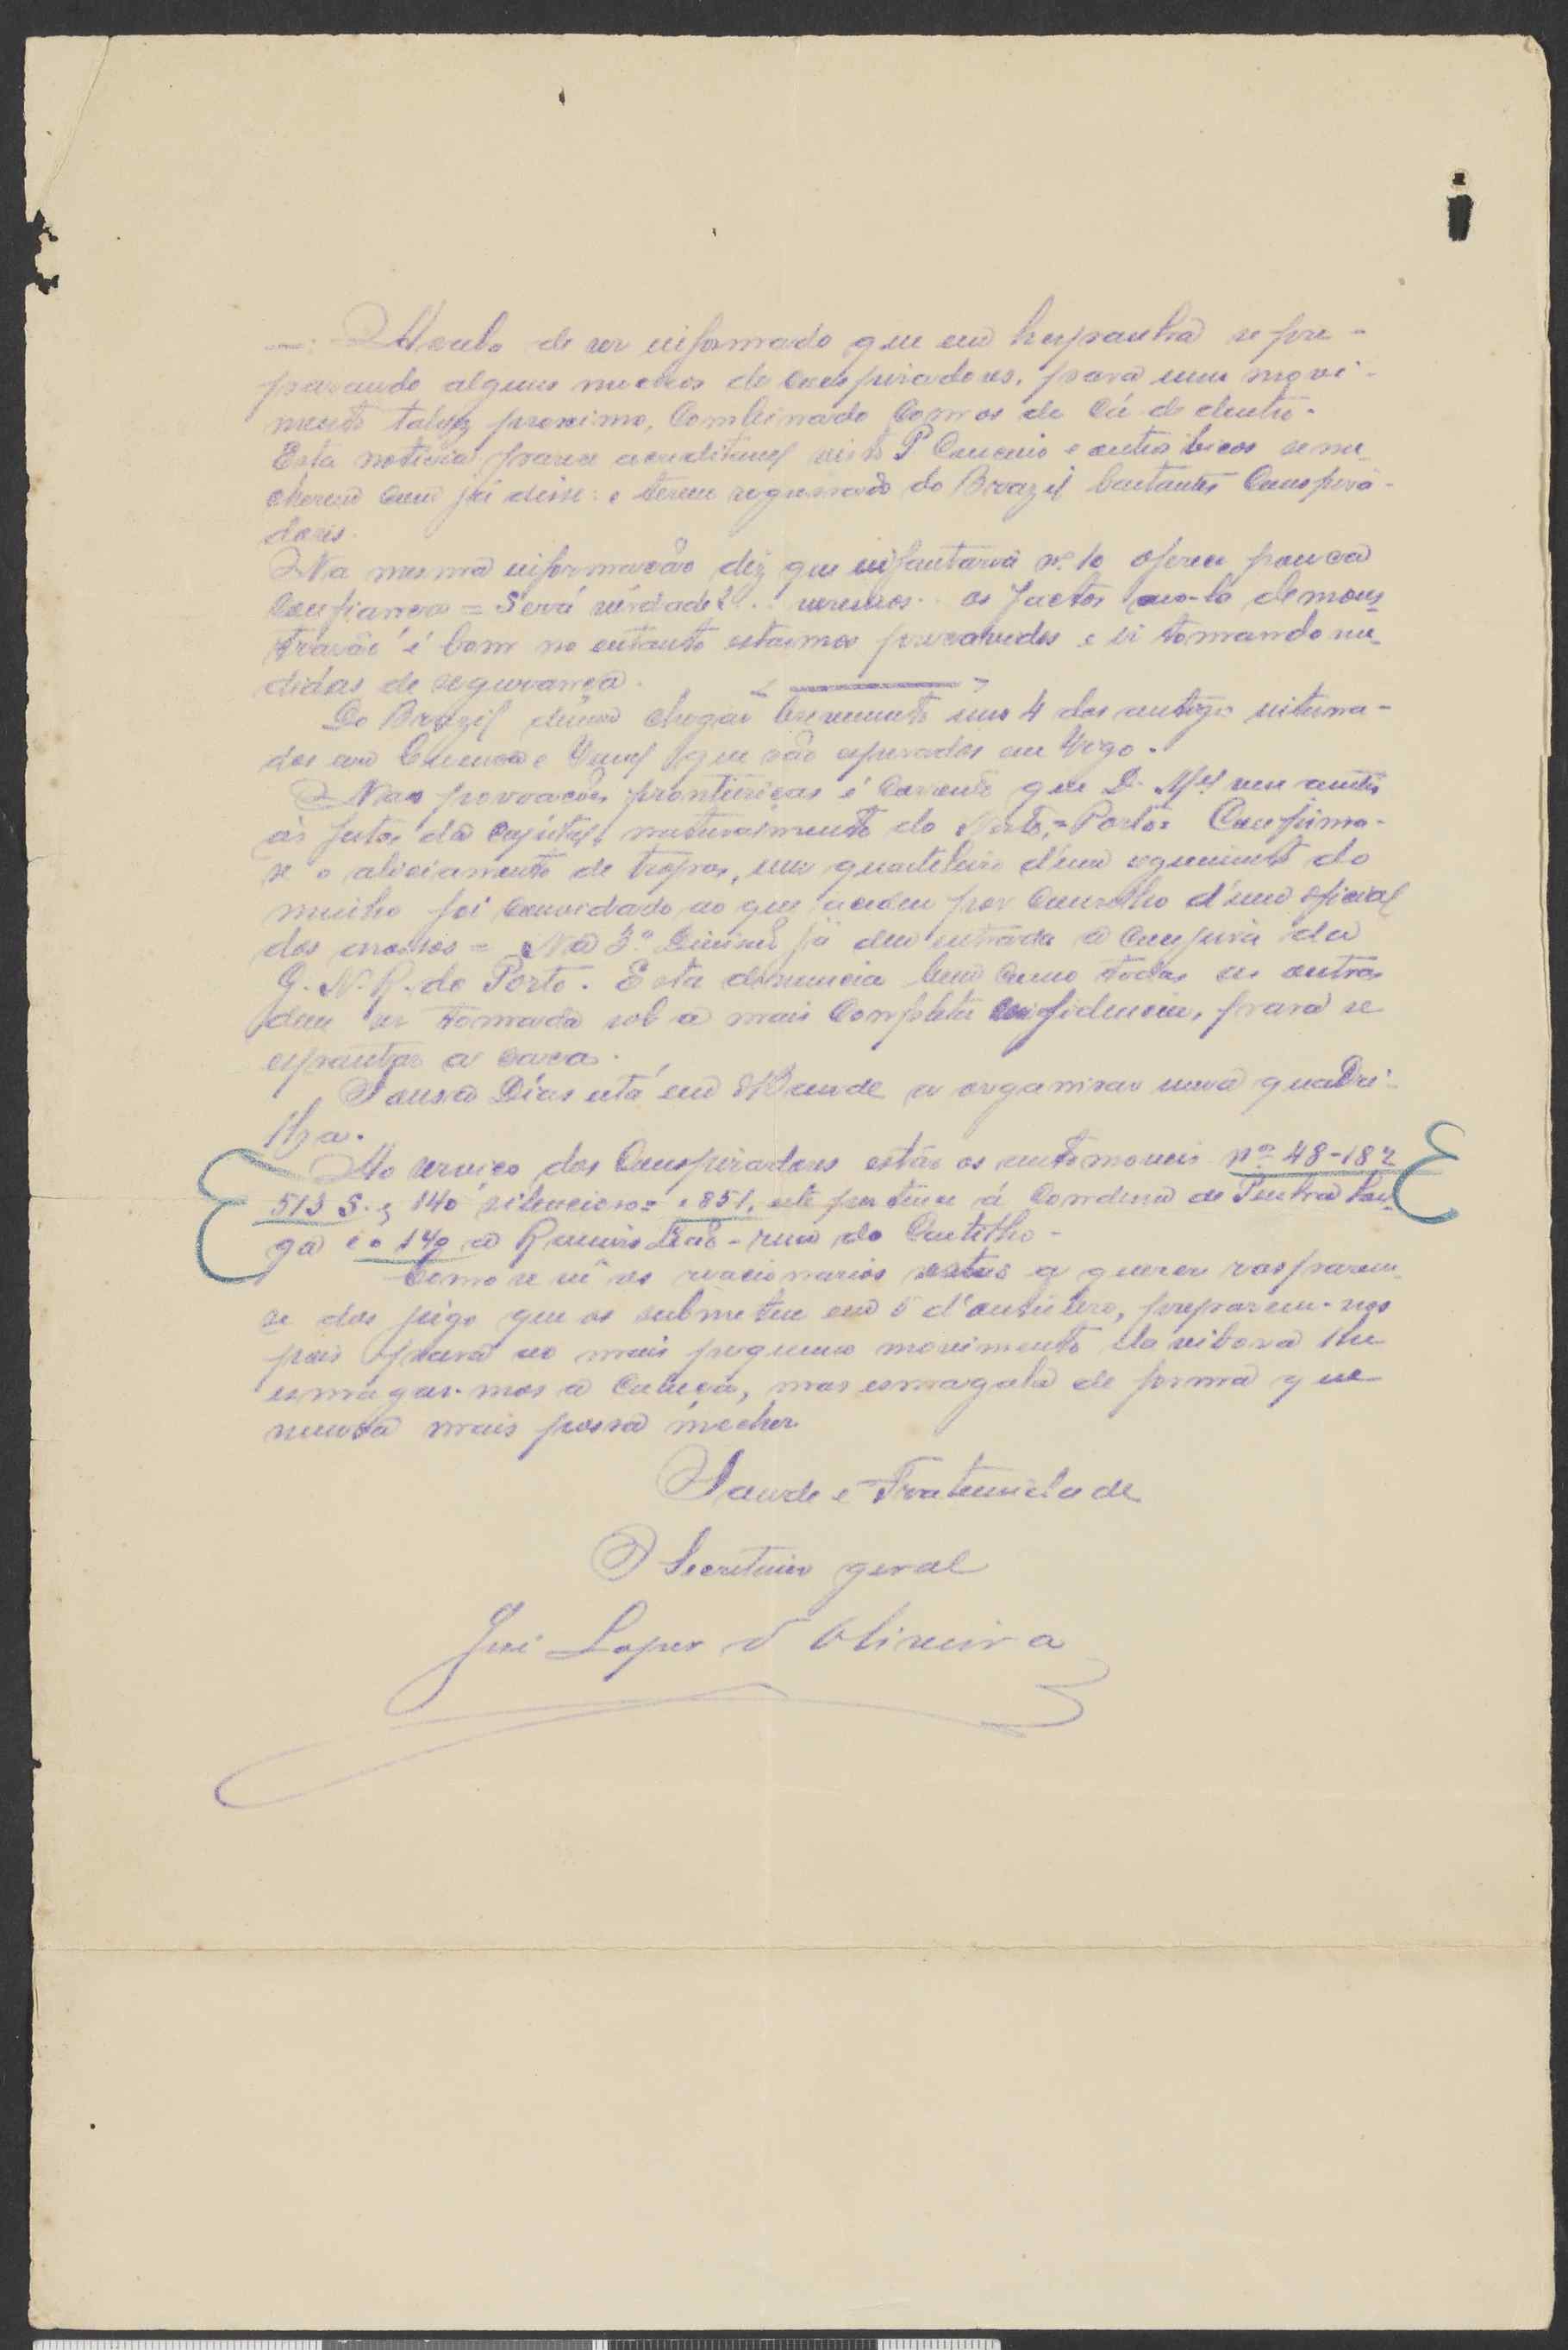 —: Acabo de ser informado que em hespanha se pre-
parando alguns nucleos de conspiradores, para um movi-
mento talvez proximo, combinado com os de cá de dentro.
Esta noticia parece acreditavel visto P. Couceiro e outros bicos se me-
cherem como já disse: e terem regressado do Brazil bastantes conspira-
dores.
Na mesma informação diz que infantaria nº 10 oferece pouca
confiança = Será verdade?.. veremos.. os factos no-lo demons
trarão é bom no entanto estarmos precavidos e ir tomando me-
didas de segurança.
Do Brazil devem chegar brevemente uns 4 dos antigos interna-
dos em Cuenca e Teruel que são esperados em Vigo.
Nas povoações fronteiriças é corrente que D. Mel vem assistir
ás festas da capital, naturalmente do Norte, = Porto = Confirma-
se o aliciamento de tropas, um quarteleiro d'um regimento do
minho foi convidado ao que acedeu por conselho d'um oficial
dos nossos = Na 3ª Divisão já deu entrada a conjura da
G. N. R. do Porto. Esta denuncia bem como todas as outras
deve ser tomada sob a mais completa confidencia, para se
espantar a caça.
Sousa Dias está em a organisar uma quadri-
lha.
Ao serviço dos conspiradores estão os automoveis nº 48-182
513 S. e 140 silencioso = e 851, este pertence á Condessa de Penha Lon
ga e o 140 a Ramiro Leão - rua do Castilho -
Como se vê os reacionarios estão a querer rasparem-
se do jugo que os submeteu em 5 d'outubro, preparem-nos
pois para ao mais pequeno movimento da vibora lhe
esmagar-mos a cabeça, mas esmagala de forma que
nunca mais possa mecher
Saude e Fraternidade
O Secretario geral
José Lopes d'Oliveira